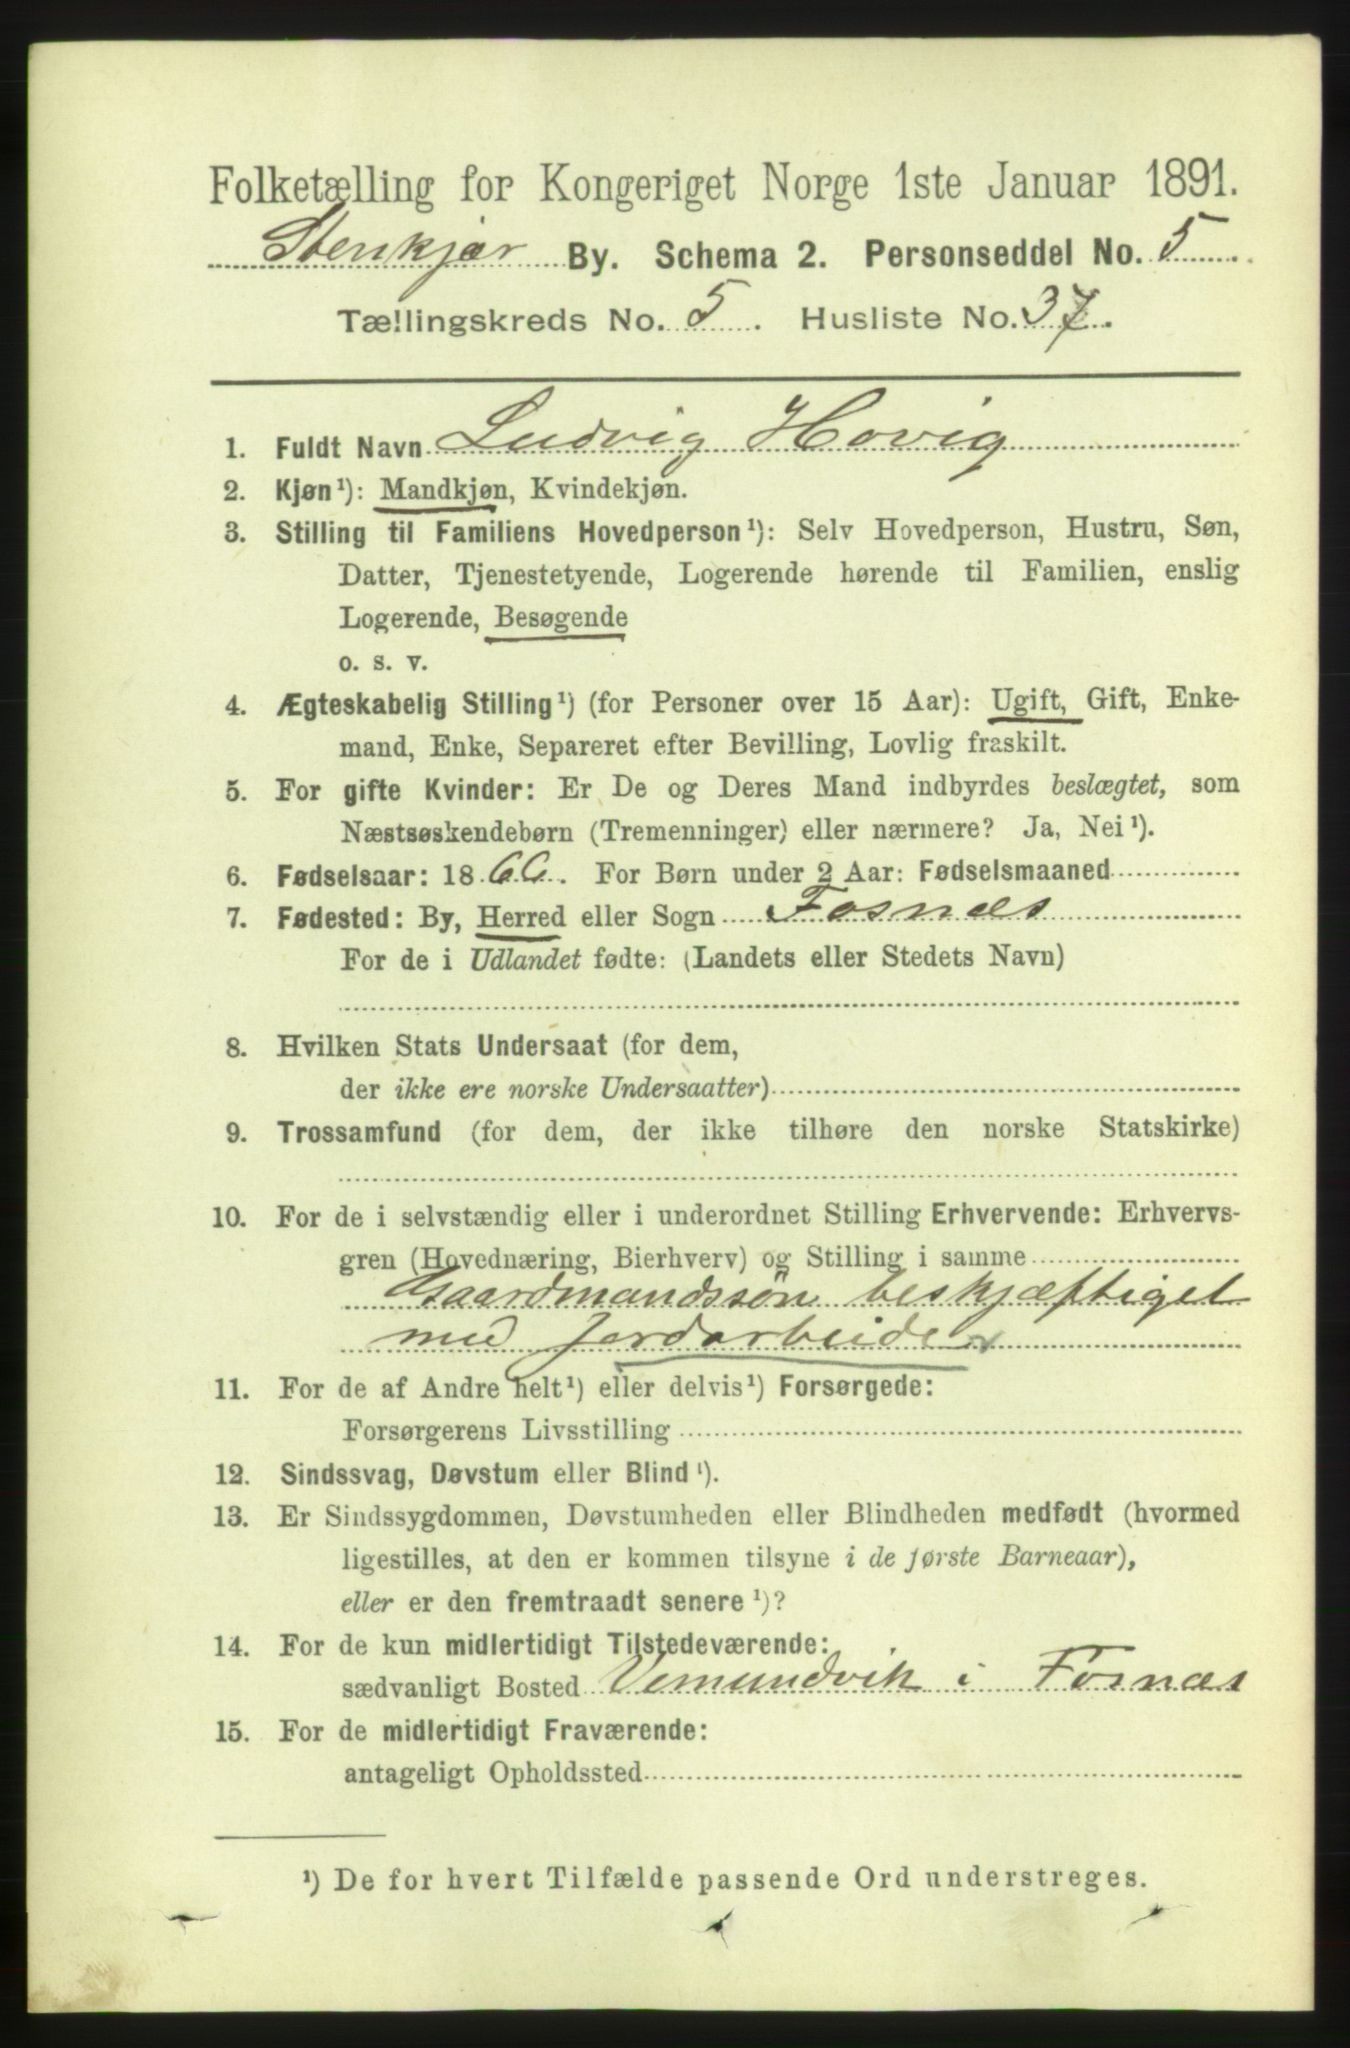 Folketælling for Kongeriget Norge 1ste Januar 1891.
Stenkjær By. Schema 2. Personseddel No. 5
Tællingskreds No. 5. Husliste No. 37.
1. Fuldt Navn Ludvig Hovig
2. Kjøn¹): Mandkjøn, Kvindekjøn.
3. Stilling til Familiens Hovedperson¹): Selv Hovedperson, Hustru, Søn,
Datter, Tjenestetyende, Logerende hørende til Familien, enslig
Logerende, Besøgende
o. s. v.
4. Ægteskabelig Stilling¹) (for Personer over 15 Aar): Ugift, Gift, Enke-
mand, Enke, Separeret efter Bevilling, Lovlig fraskilt.
5. For gifte Kvinder: Er De og Deres Mand indbyrdes beslægtet, som
Næstsøskendebørn (Tremenninger) eller nærmere? Ja, Nei¹).
6. Fødselsaar: 1866. For Børn under 2 Aar: Fødselsmaaned
7. Fødested: By, Herred eller Sogn Fosnæs
For de i Udlandet fødte: (Landets eller Stedets Navn)
8. Hvilken Stats Undersaat (for dem,
der ikke ere norske Undersaatter)
9. Trossamfund (for dem, der ikke tilhøre den norske Statskirke)
10. For de i selvstændig eller i underordnet Stilling Erhvervende: Erhvervs-
gren (Hovednæring, Bierhverv) og Stilling i samme
Gaardmandssøn beskjæftiget
med Jordarbeide
11. For de af Andre helt¹) eller delvis¹) Forsørgede:
Forsørgerens Livsstilling
12. Sindssvag, Døvstum eller Blind¹).
13. Er Sindssygdommen, Døvstumheden eller Blindheden medfødt (hvormed
ligestilles, at den er kommen tilsyne i de første Barneaar),
eller er den fremtraadt senere¹)?
14. For de kun midlertidigt Tilstedeværende:
sædvanligt Bosted Vemundvik i Fosnæs
15. For de midlertidigt Fraværende:
antageligt Opholdssted
¹) De for hvert Tilfælde passende Ord understreges.